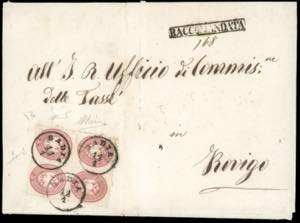 RACCOMANDATA
168
All' I. R. Uffizio di Commis.ne
delle Tasse
in
Rovigo
BADIA
BADIA